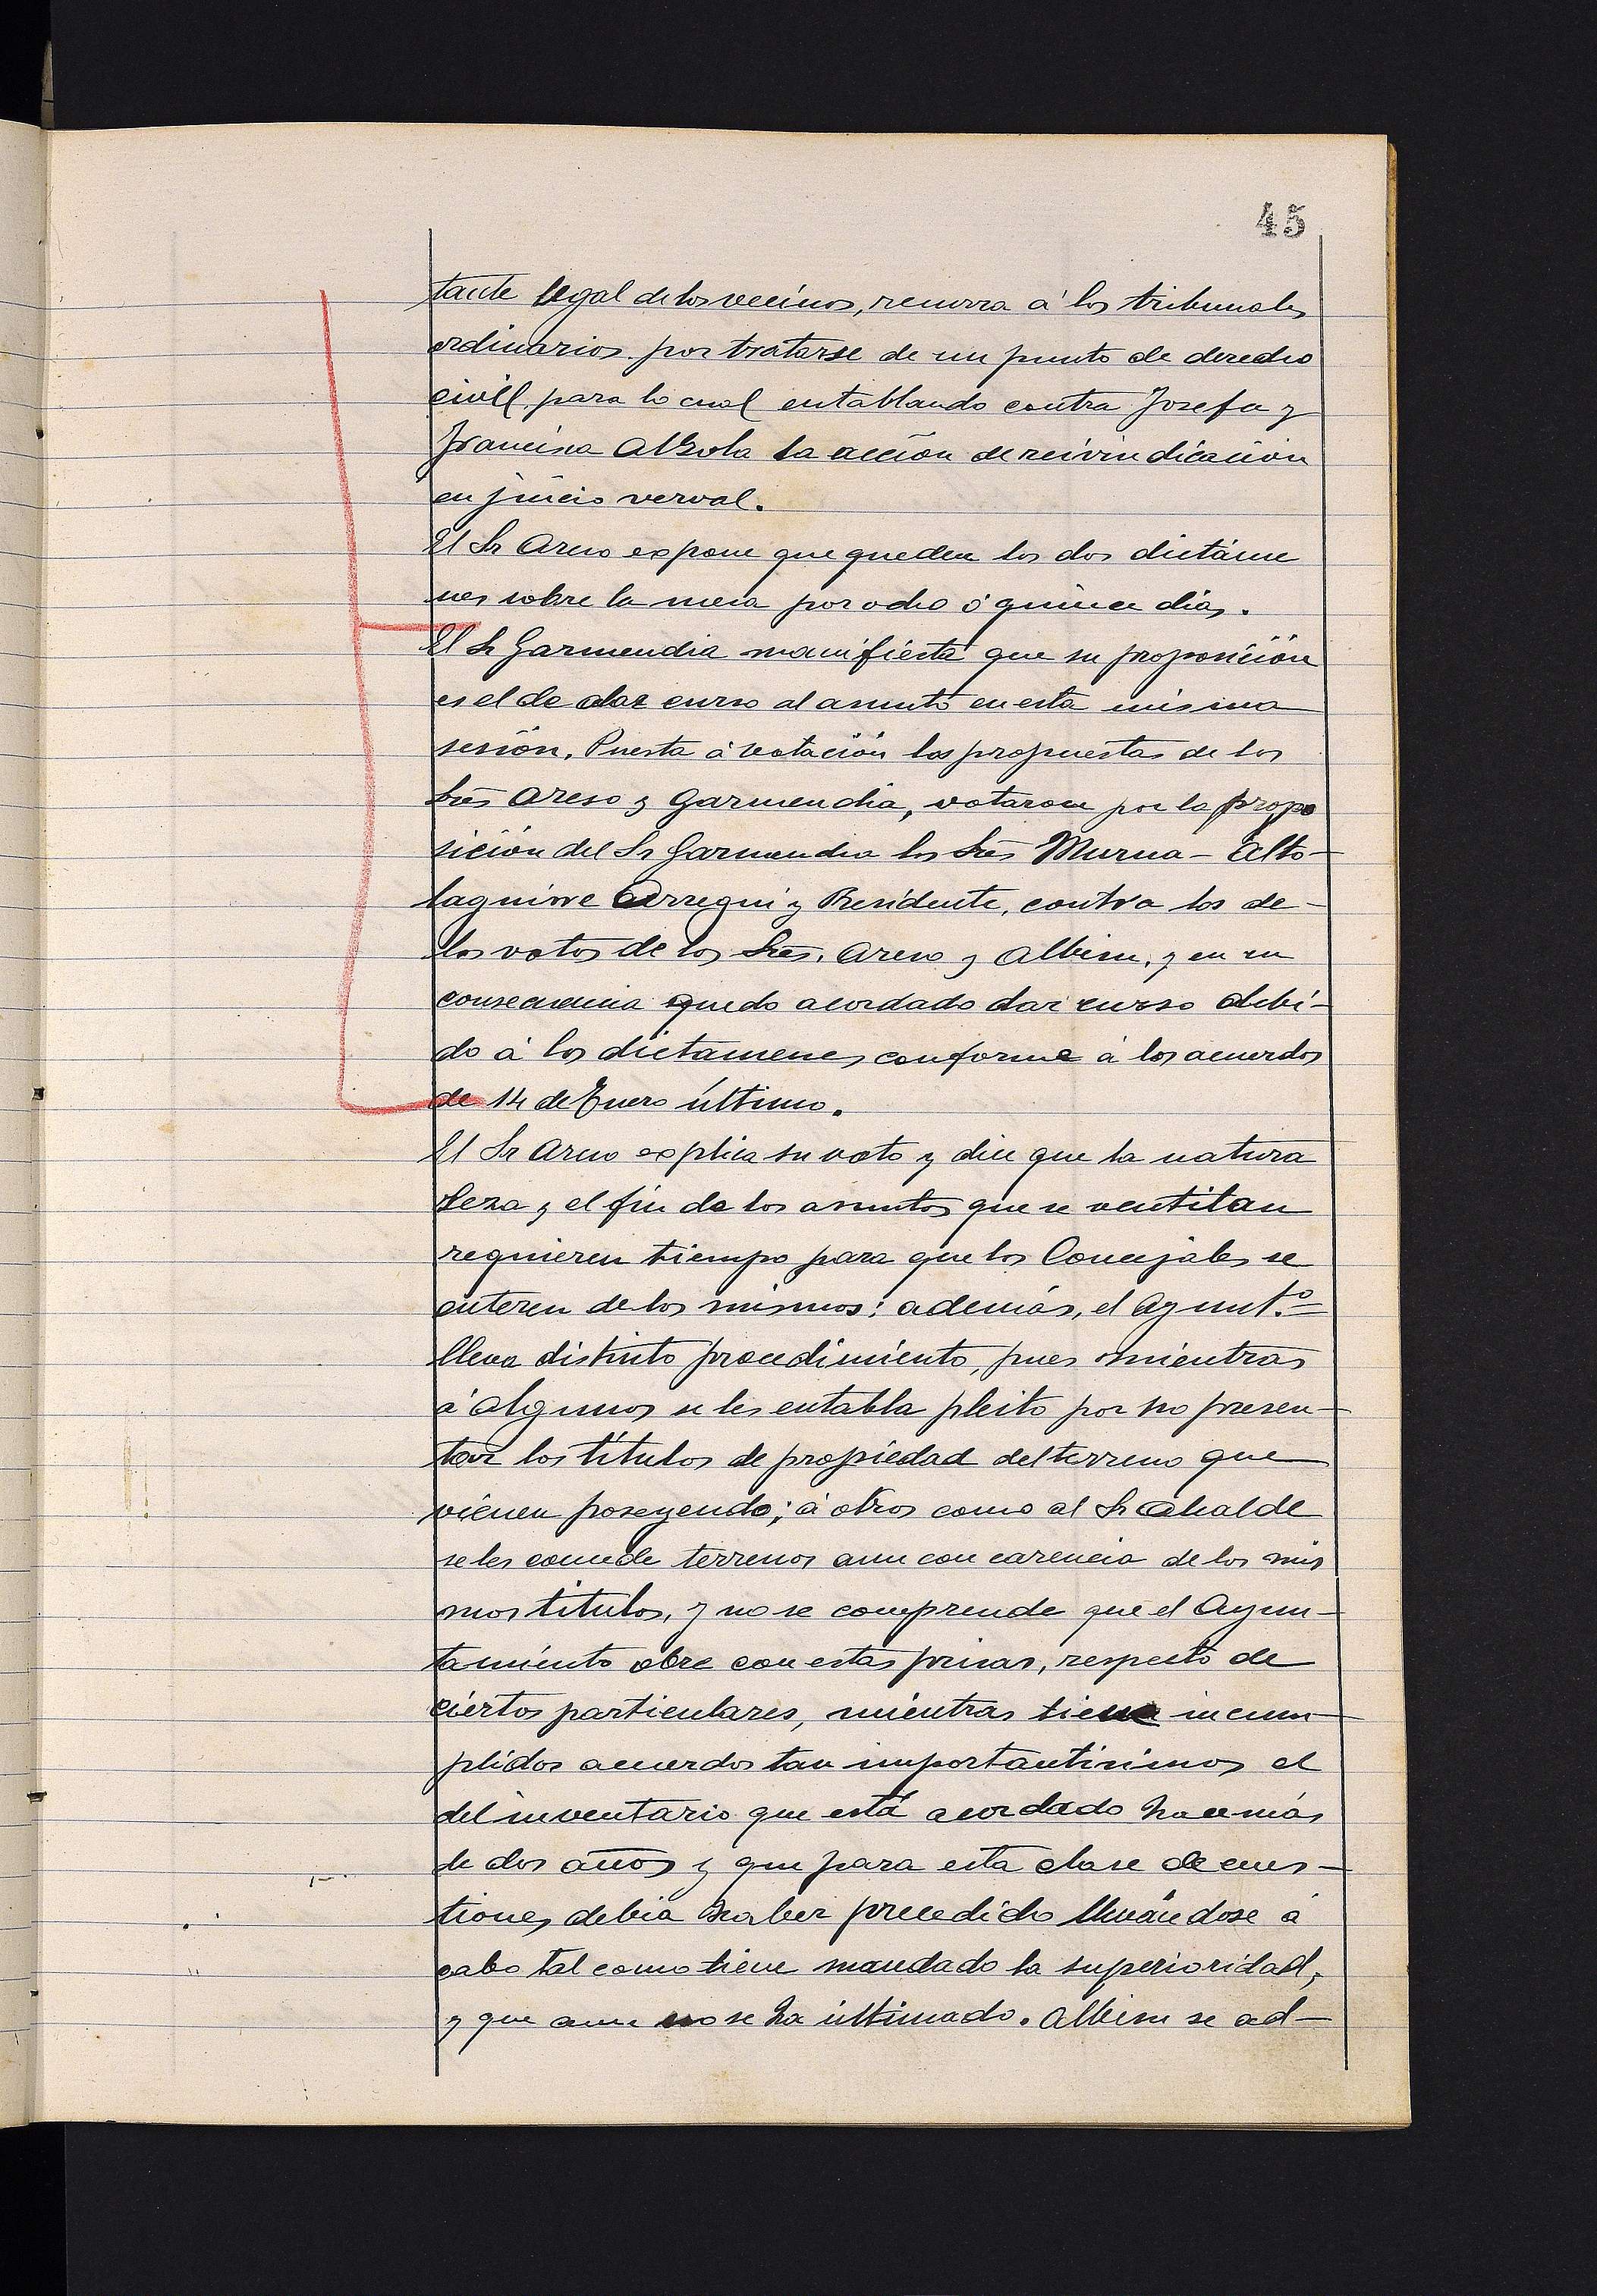 45
tante legal de los vecinos, recurra á los tribunales
ordinarios por tratarse de un punto de derecho
civil, para lo cual entablando contra Josefa y
Francisca Alzola la acción de reivindicación
en juicio verval.
El Sr Areso expone que queden los dos dictáme
nes sobre la mesa por ocho ó quince dias.
El Sr Garmendia manifiesta que su proposición
es el de dar curso al asunto en esta misma
sesión. Puesta á votación las propuestas de los
Sres Areso y Garmendia, votaron por la propo
sición del Sr Garmendia los Sres Murua - Alto-
laguirre Arregui y Presidente, contra los de-
los votos de los Sres. Areso y Albisu, y en su
consecuencia quedo acordado dar curso debi-
do á los dictamenes conforme á los acuerdos
de 14 de Enero último.
El Sr Areso explica su voto y dice que la natura
leza y el fin de los asuntos que se ventilan
requieren tiempo para que los Concejales se
enteren de los mismos; además, el Ayunt.º
lleva distinto procedimiento, pues mientras
á algunos se les entabla pleito por no presen-
tar los títulos de propiedad del terreno que
vienen poseyendo; á otros como al Sr Alcalde
se les concede terrenos aun con carencia de los mis
mos titulos, y no se comprende que el Ayun-
tamiento obre con estas prisas, respecto de
ciertos particulares, mientras tiene incum
plidos acuerdos tan importantisimos el
del inventario que está acordado hace más
de dos años y que para esta clase de cues-
tiones debia haber precedido llevándose á
cabo tal como tiene mandado la superioridad,
y que aun no se ha ultimado. Albisu se ad-